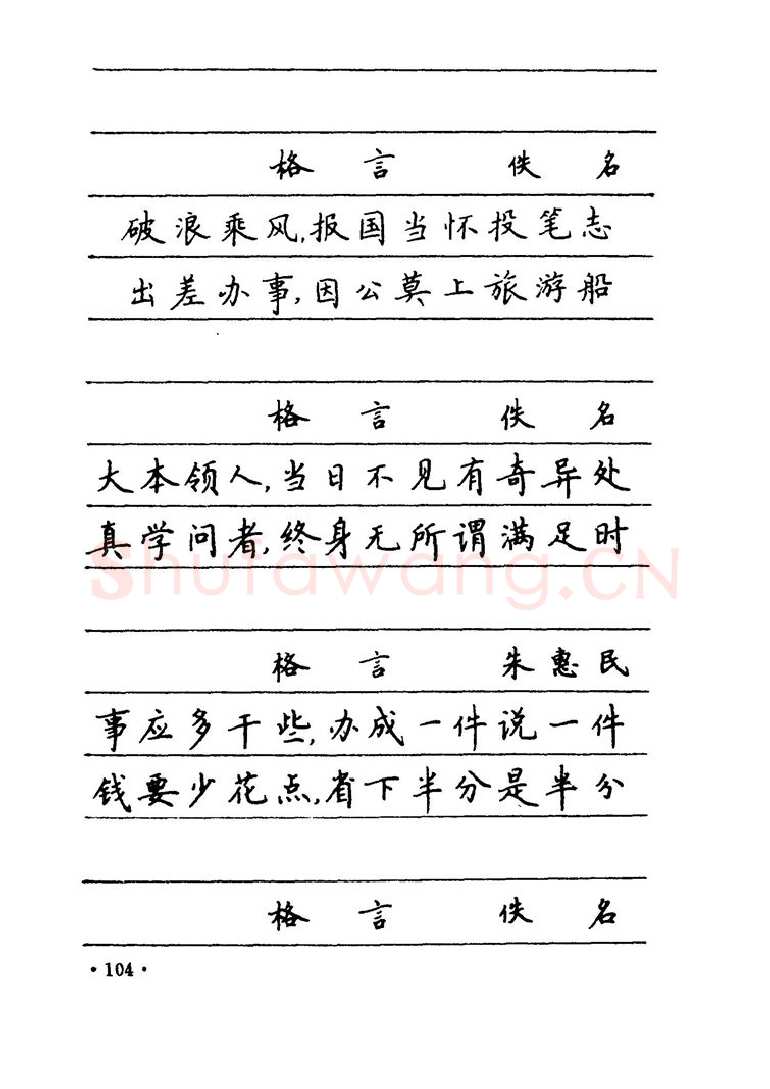 格言 佚名
破浪乘风,报国当怀投笔志
出差办事,因公莫上旅游船
格言 佚名
大本领人,当日不见有奇异处
真学问者,终身无所谓满足时
Shufawang.CN
格言 朱惠民
事应多干些,办成一件说一件
钱要少花点,省下半分是半分
格言 佚名
·104·